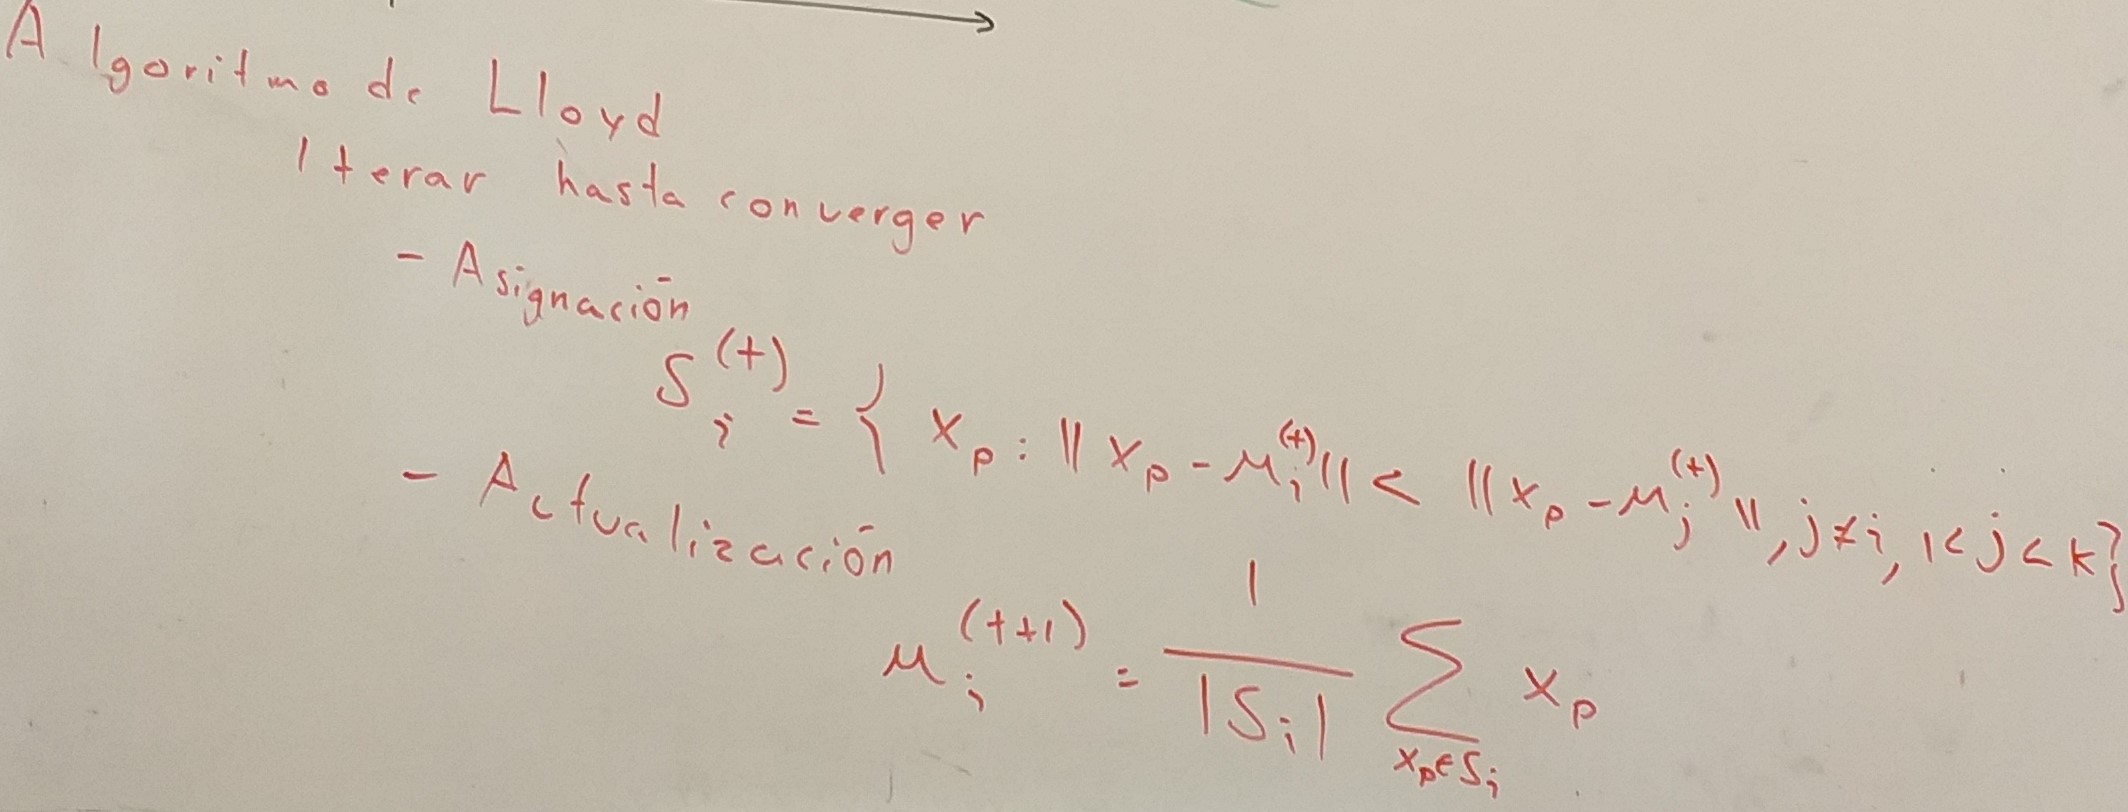 Algoritmo de Lloyd
Iterar hasta converger
- Asignación
S_i^(t) = { x_p : || x_p - μ_i^(t) || < || x_p - μ_j^(t) ||, j ≠ i, 1 < j < k }
- Actualización
μ_i^(t+1) = 1 / |S_i| ∑_{x_p ∈ S_i} x_p